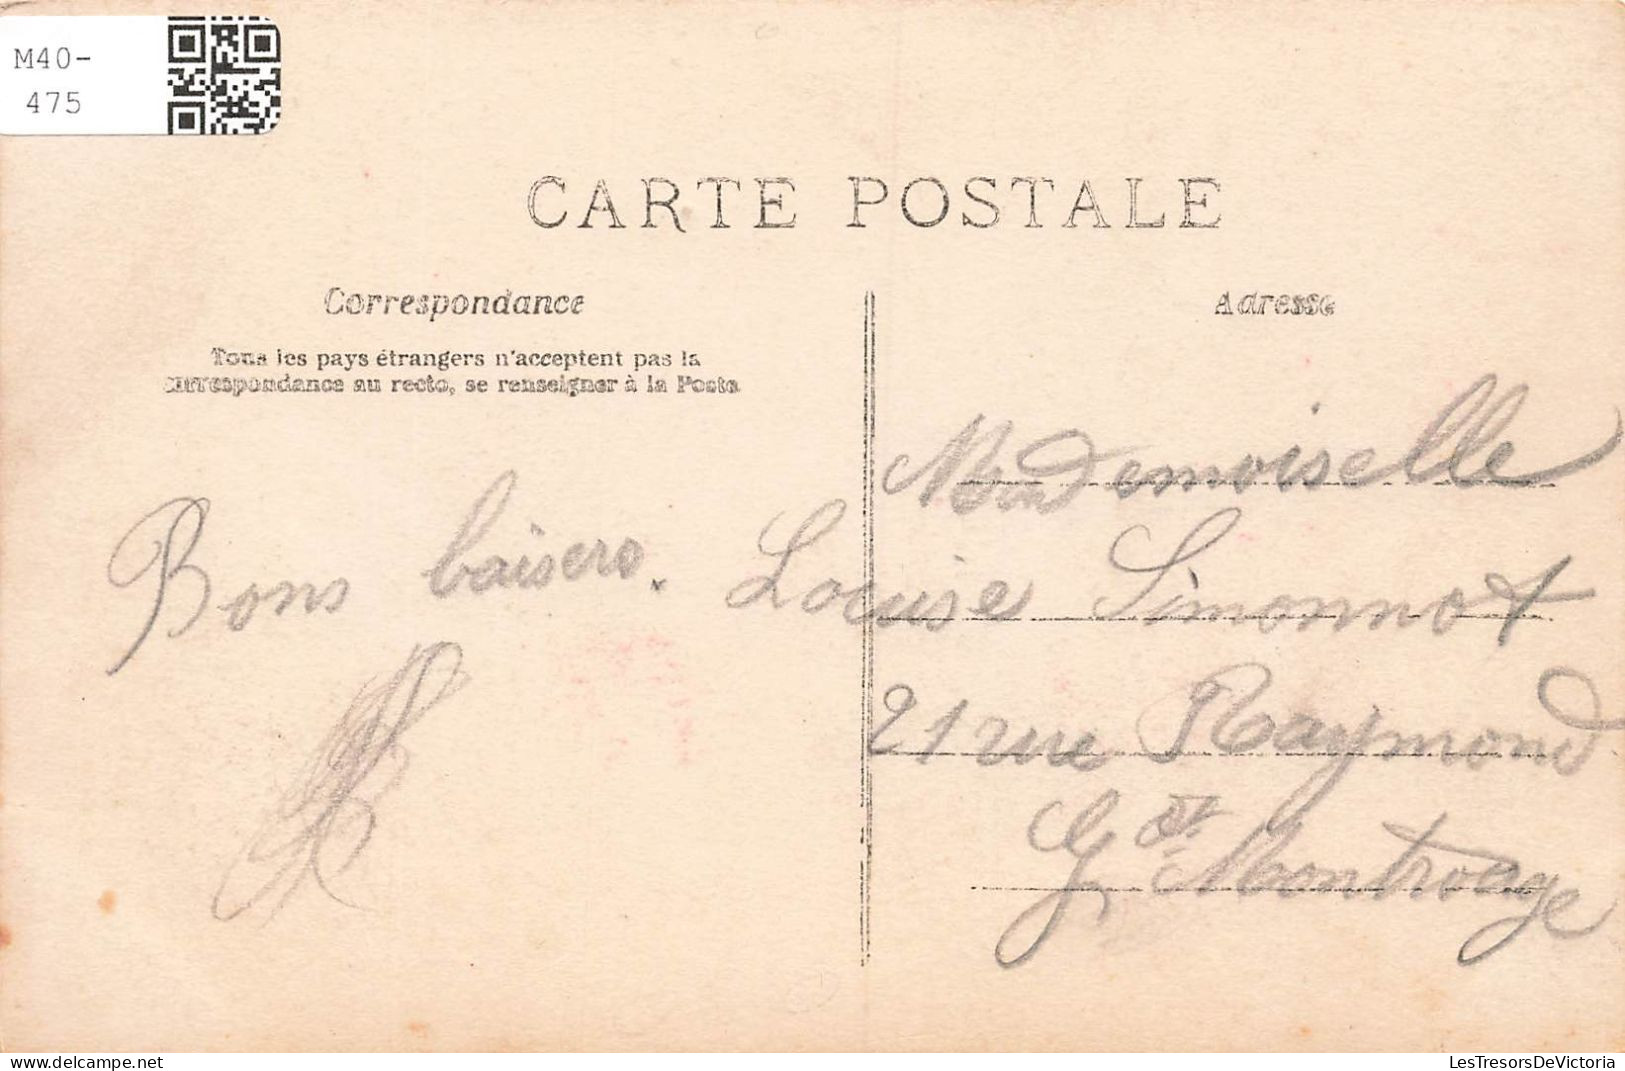 M40-
475
CARTE POSTALE
Correspondance
Tous les pays étrangers n'acceptent pas la
correspondance au recto, se renseigner à la Poste
Bons baisers.
Adresse
Mademoiselle
Louise Simonnot
21 rue Raymond
Gd Montrouge
www.delcampe.net
LesTresorsDeVictoria